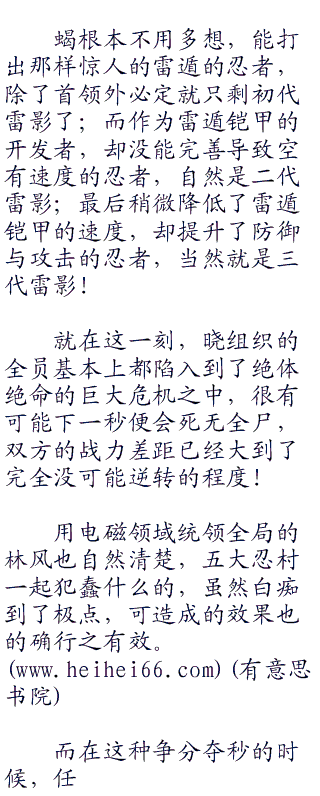 蝎根本不用多想，能打
出那样惊人的雷遁的忍者，
除了首领外必定就只剩初代
雷影了；而作为雷遁铠甲的
开发者，却没能完善导致空
有速度的忍者，自然是二代
雷影；最后稍微降低了雷遁
铠甲的速度，却提升了防御
与攻击的忍者，当然就是三
代雷影！
就在这一刻，晓组织的
全员基本上都陷入到了绝体
绝命的巨大危机之中，很有
可能下一秒便会死无全尸，
双方的战力差距已经大到了
完全没可能逆转的程度！
用电磁领域统领全局的
林风也自然清楚，五大忍村
一起犯蠢什么的，虽然白痴
到了极点，可造成的效果也
的确行之有效。
(www.heihei66.com)(有意思
书院)
而在这种争分夺秒的时
候，任